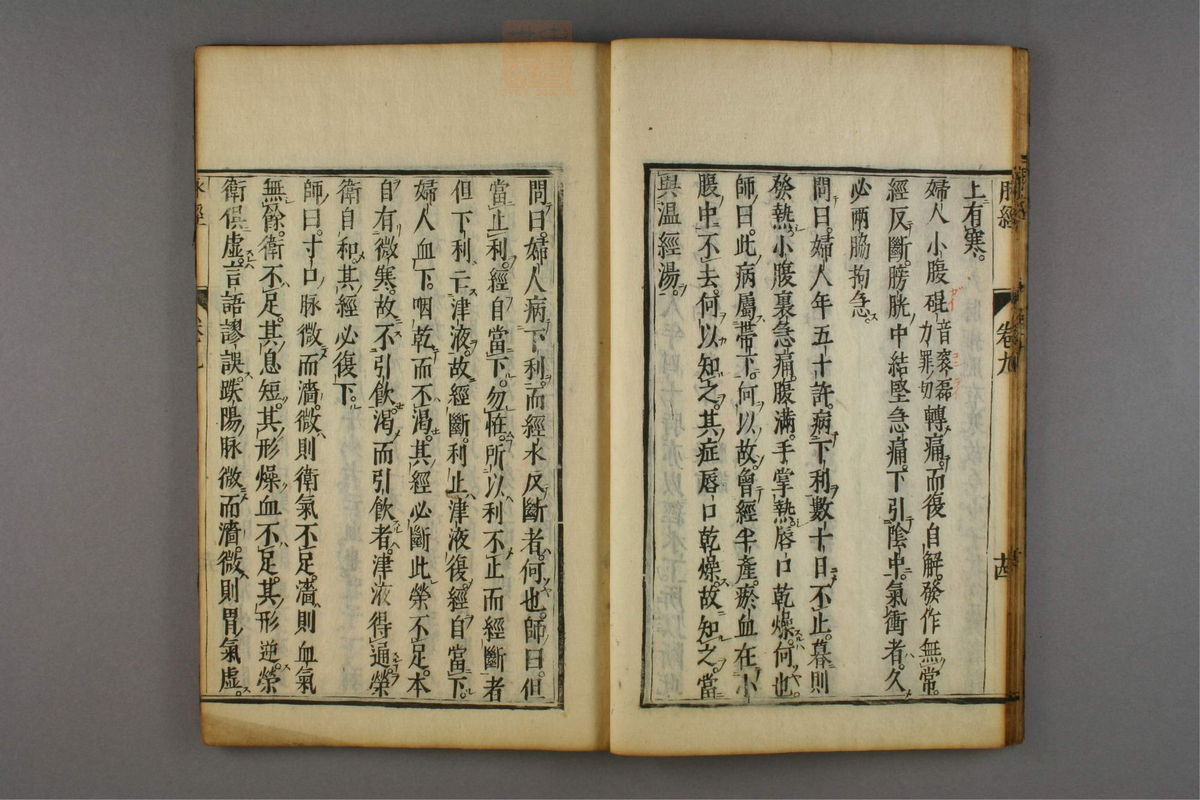 脉經
卷九
上有寒。
婦人小腹磊音衮磊力罪切轉痛。而復自解。發作無常。
經反斷。膀胱中結堅急痛。下引陰中。氣衝者。久
必兩脇拘急。
問曰。婦人年五十許。病下利數十日不止。暮則
發熱。小腹裏急痛。腹滿。手掌熱。唇口乾燥。何也。
師曰。此病屬帶下。何以故。曾經半產。瘀血在小
腹中不去。何以知之。其症唇口乾燥。故知之。當
與溫經湯。
問曰。婦人病下利。而經水反斷者。何也。師曰。但
當止利。經自當下。勿怪。所以利不止而經斷者
但下利亡津液。故經斷。利止。津液復。經自當下。
婦人血下。咽乾而不渴。其經必斷。此榮不足。本
自有微寒。故不引飲。渴而引飲者。津液得通。榮
衛自和。其經必復下。
師曰。寸口脉微而濇。微則衛氣不足。濇則血氣
無餘。衛不足。其息短。其形燥。血不足。其形逆。榮
衛俱虛。言語謬誤。趺陽脉微而濇。微則胃氣虛。